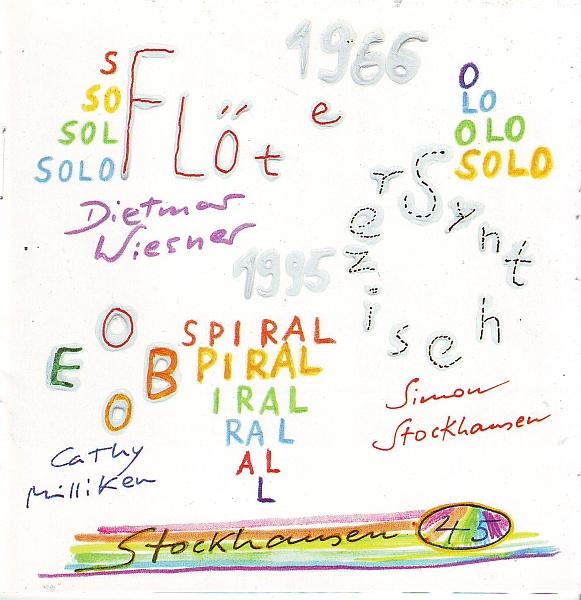 1966
S
SO
SOL
SOLO
Flöte
O
LO
OLO
SOLO
Dietmar
Wiesner
Synthesizer
1995
OBOE
SPIRAL
PIRAL
IRAL
RAL
AL
L
Simon
Stockhausen
Cathy
Milliken
Stockhausen 45